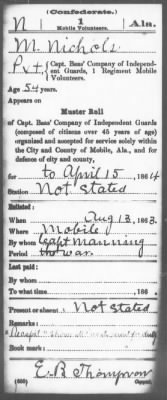 (Confederate.)
N 1 Ala.
Mobile Volunteers.
M. Nichols
Pvt, Capt. Beas' Company of Independ-
ent Guards, 1 Regiment Mobile
Volunteers.
Age 54 years.
Appears on
Muster Roll
of Capt. Beas' Company of Independent Guards
(composed of citizens over 45 years of age)
organized and accepted for service solely within
the City and County of Mobile, Ala., and for
defence of city and county,
for to April 15, 1864
Station Not Stated
Enlisted:
When Aug 13, 1863.
Where Mobile
By whom Capt Manning
Period the war.
Last paid:
By whom
To what time , 186 .
Present or absent Not Stated
Remarks:
Book mark:
E. B. Thompson
Copyist.